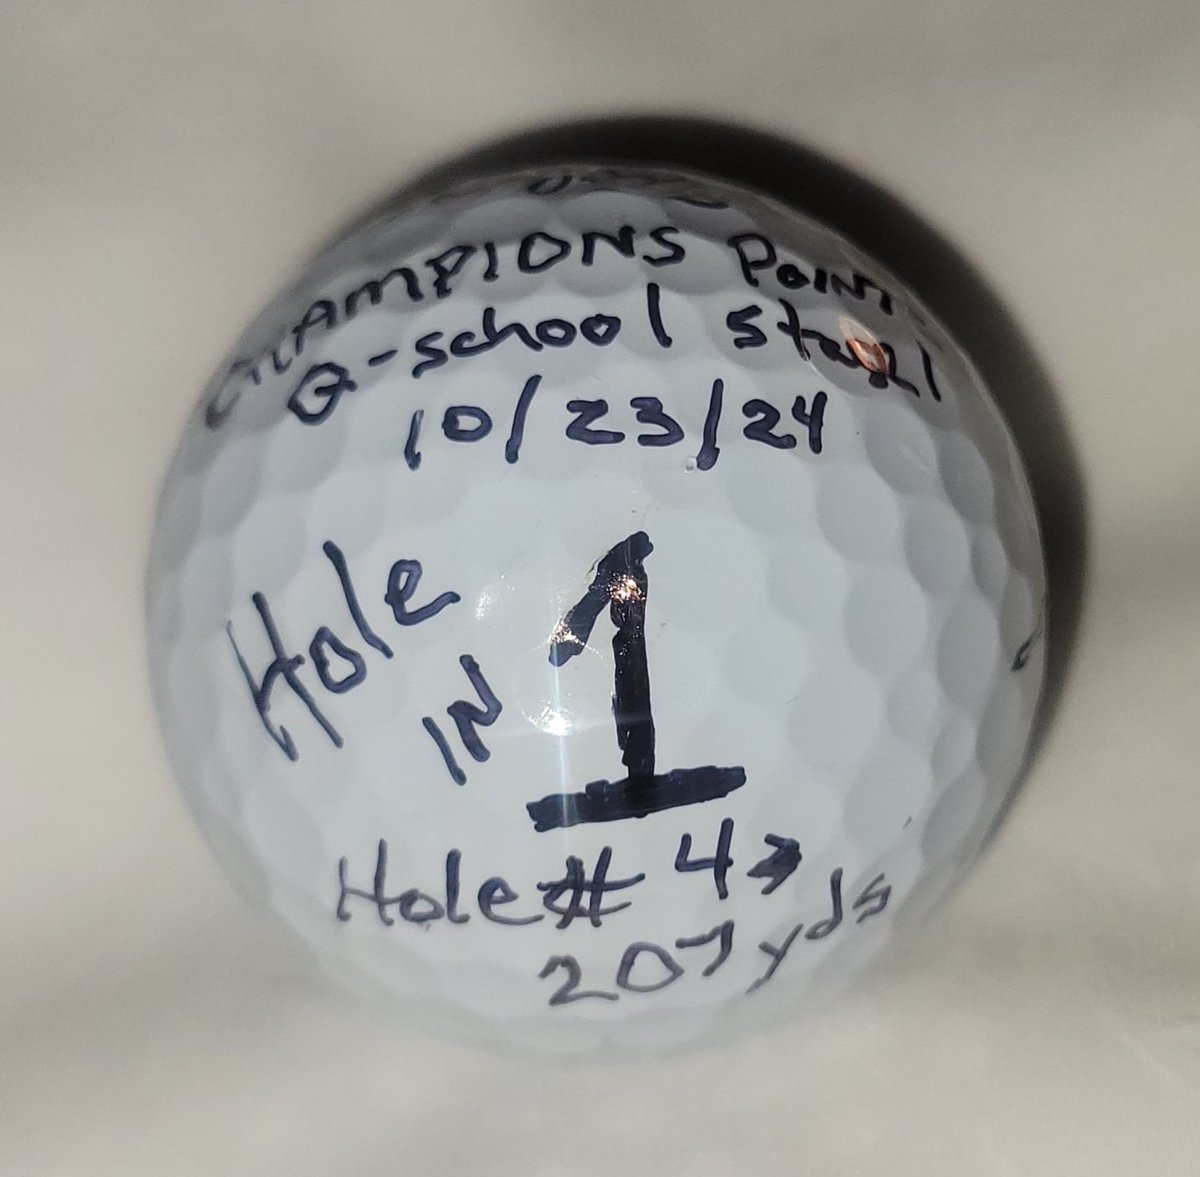 CHAMPIONS POINT
Q-school Stage 1
10/23/24
Hole
IN
1
Hole # 4 →
207 yds